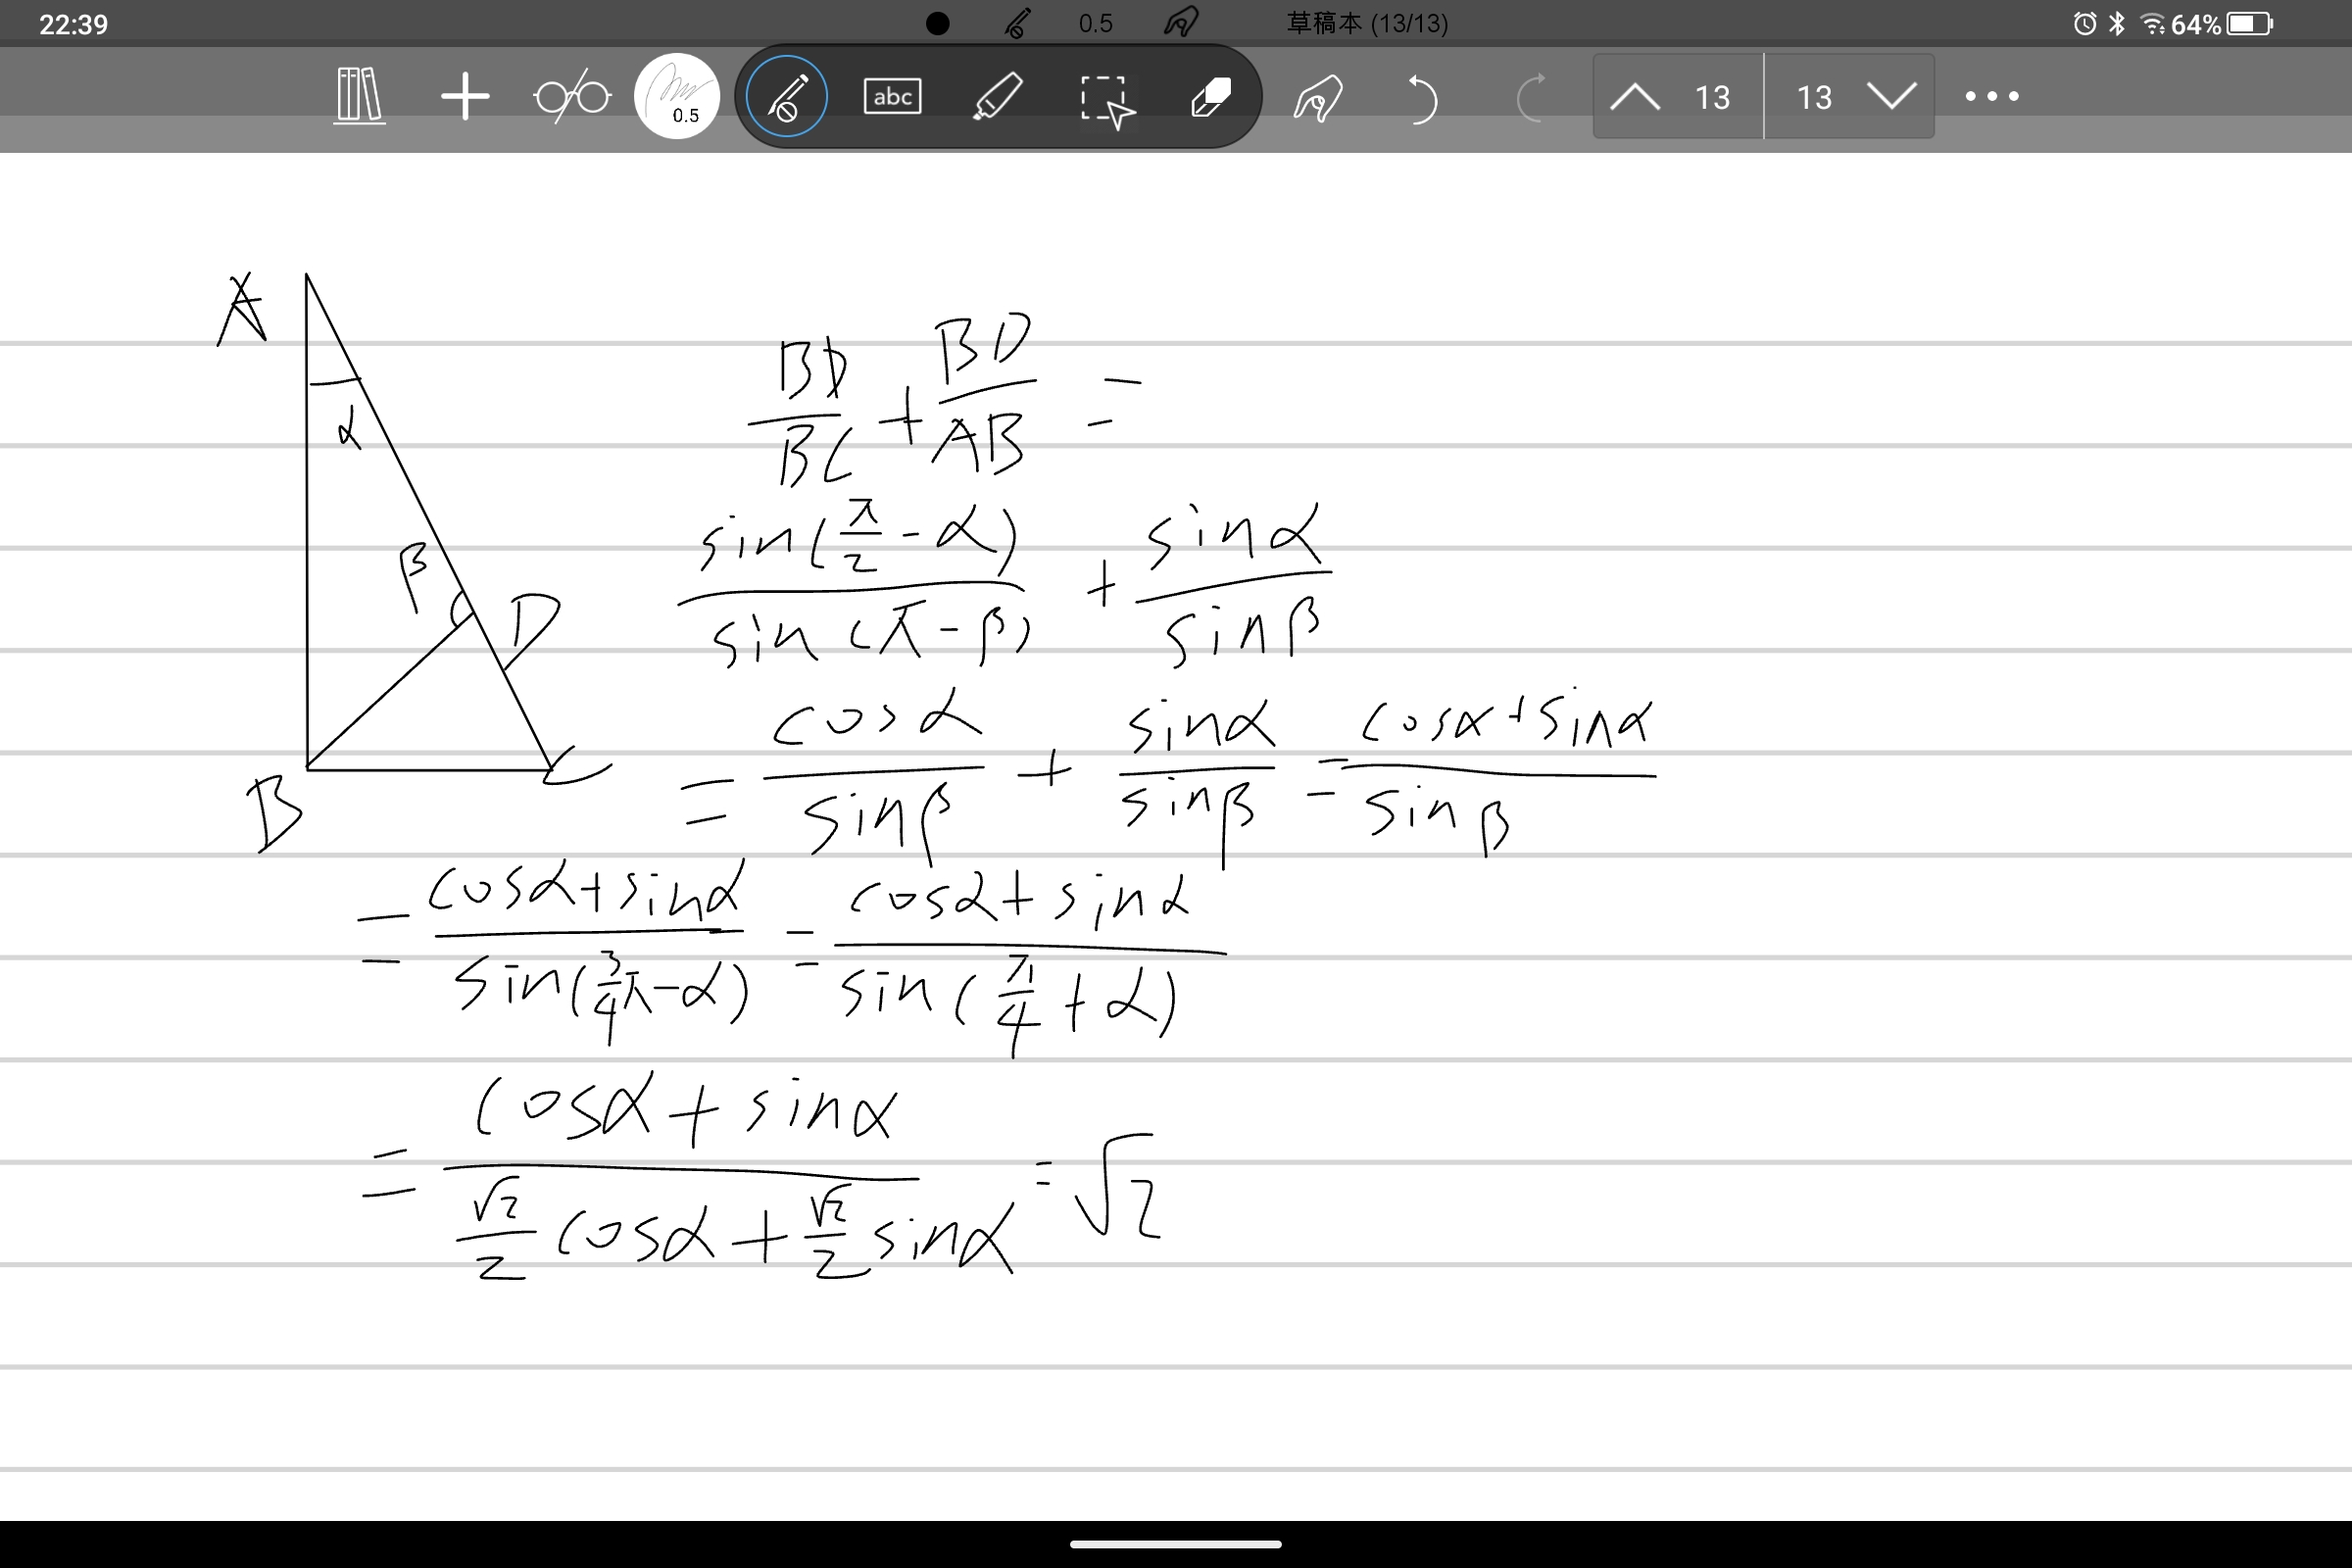 22:39
0.5
草稿本 (13/13)
64%
0.5
abc
13
13
A
α
β
D
B
C
BD/BC + BD/AB =
sin(π/2 - α)/sin(π - β) + sinα/sinβ
= cosα/sinβ + sinα/sinβ = cosα + sinα/sinβ
= cosα + sinα/sin(3/4π - α) = cosα + sinα/sin(π/4 + α)
= cosα + sinα/√2/2 cosα + √2/2 sinα = √2